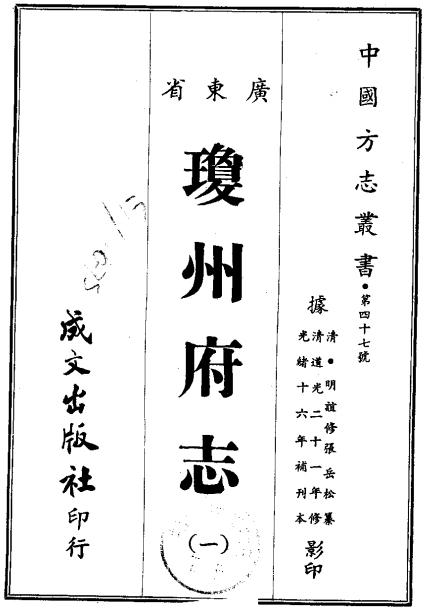 中國方志叢書●第四十七號
據
清●明誼修張岳松纂
清道光二十一年修
光緒十六年補刊本
影印
廣東省
瓊州府志
(一)
成文出版社印行